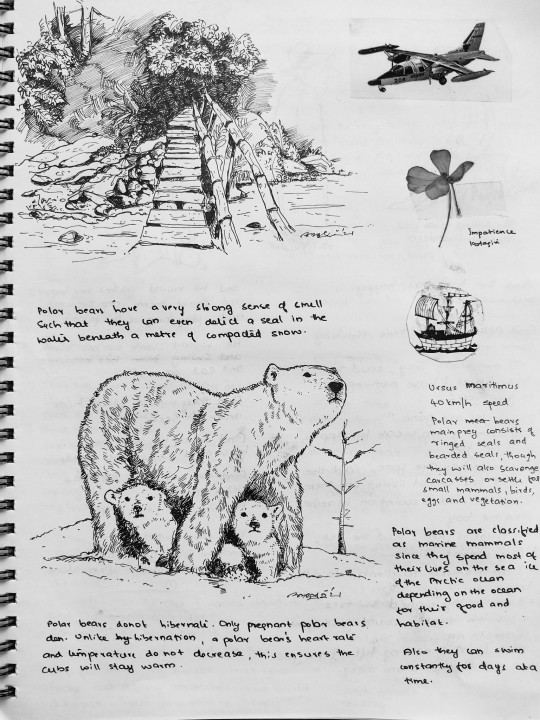 Impatience
Polar bears have a very strong sense of smell
Such that they can even detect a seal in the
water beneath a metre of compacted snow.
Ursus Maritimus
40km/h speed
Polar bears
main prey consists of
ringed seals and
bearded seals, though
they will also scavenge
carcasses or settle for
small mammals, birds,
eggs and vegetation.
Polar bears are classified
as marine mammals
since they spend most of
their lives on the sea ice
of the Arctic ocean
depending on the ocean
for their food and
habitat.
Also they can swim
constantly for days at a
time.
Polar bears donot hibernate. Only pregnant polar bears
den. Unlike hibernation, a polar bear's heart rate
and temperature do not decrease, this ensures the
cubs will stay warm.